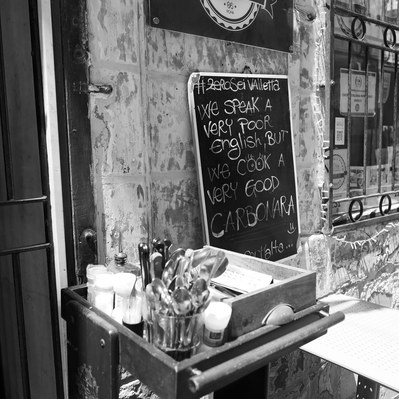 #ZEROSEIVALLETTA
WE SPEAK A
VERY POOR
ENGLISH, BUT
WE COOK A
VERY GOOD
CARBONARA